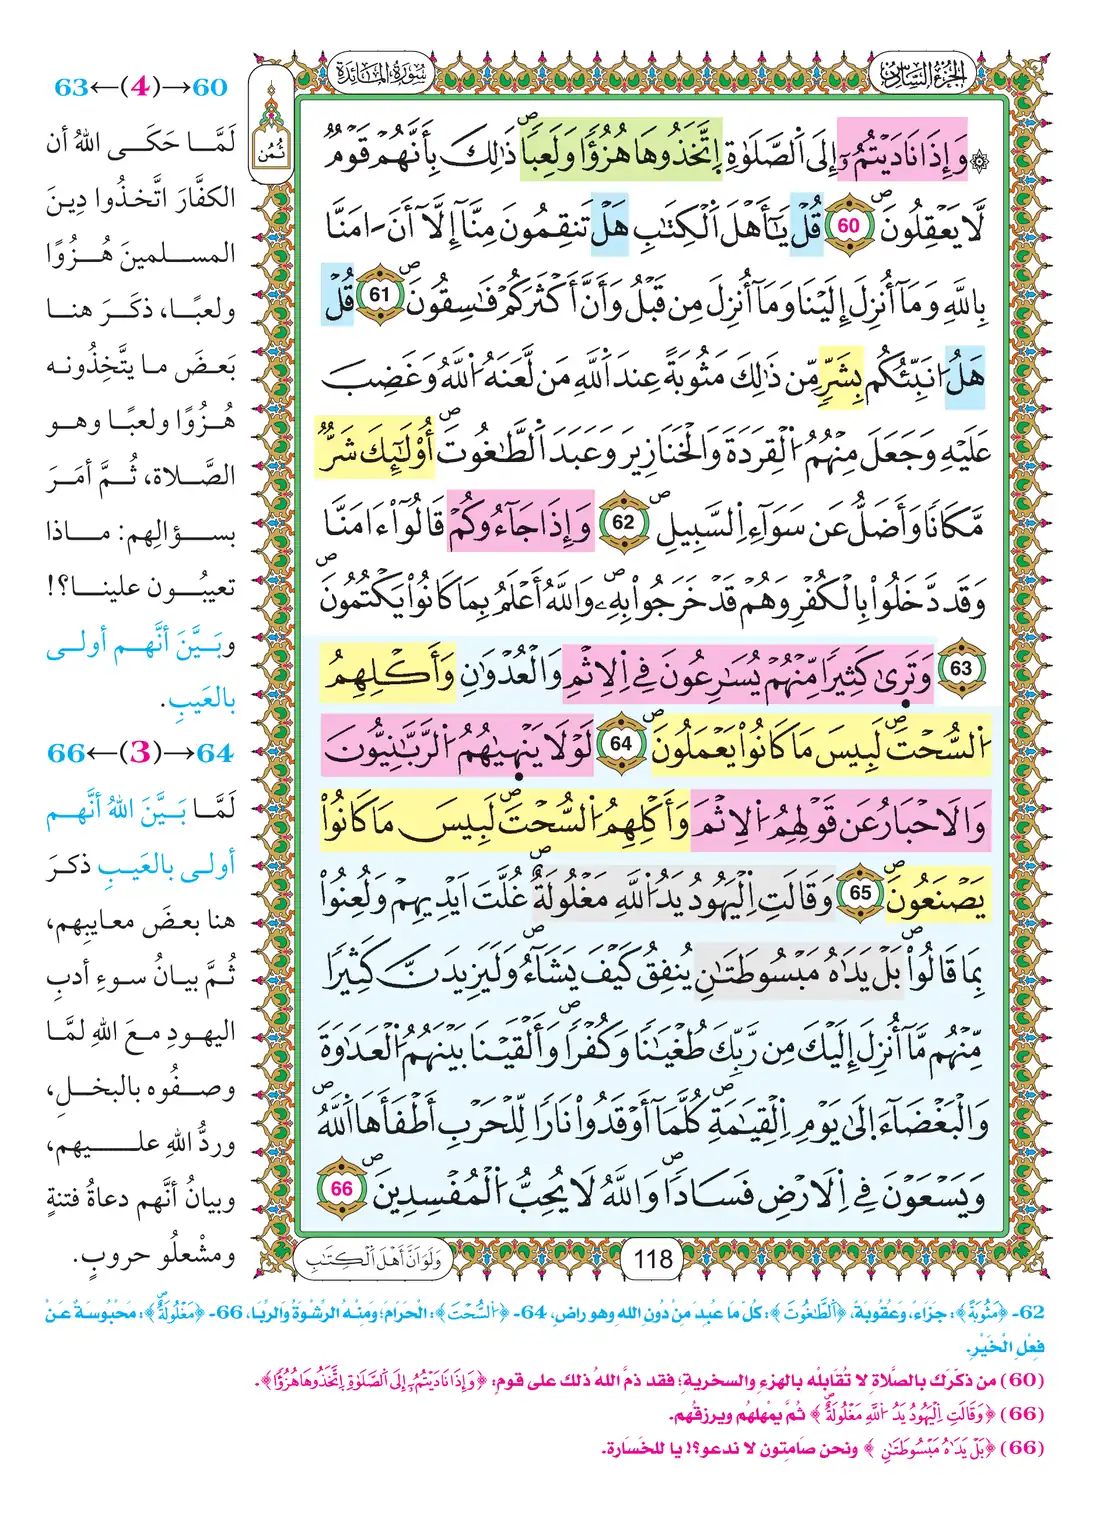 الجزء السادس
سورة المائدة
ثمن
۞ وَإِذَا نَادَيْتُمُۥٓ إِلَى اَ۬لصَّلَوٰةِ اِ۪تَّخَذُوهَا هُزُؤٗا وَلَعِباٗۖ ذَٰلِكَ بِأَنَّهُمْ قَوْمٞ
لَّا يَعْقِلُونَۖ 60 قُلْ يَٰٓأَهْلَ اَ۬لْكِتَٰبِ هَلْ تَنقِمُونَ مِنَّآ إِلَّآ أَنَ اٰمَنَّا
بِاللَّهِ وَمَآ أُنزِلَ إِلَيْنَا وَمَآ أُنزِلَ مِن قَبْلُ وَأَنَّ أَكْثَرَكُمْ فَٰسِقُونَۖ 61 قُلْ
هَلُ ا۟نَبِّئُكُم بِشَرّٖ مِّن ذَٰلِكَ مَثُوبَةً عِندَ اَ۬للَّهِ مَن لَّعَنَهُ اُ۬للَّهُ وَغَضِبَ
عَلَيْهِ وَجَعَلَ مِنْهُمُ اُ۬لْقِرَدَةَ وَالْخَنَازِيرَ وَعَبَدَ اَ۬لطَّٰغُوتَۖ أُوْلَٰٓئِكَ شَرّٞ
مَّكَاناٗ وَأَضَلُّ عَن سَوَآءِ اِ۬لسَّبِيلِۖ 62 وَإِذَا جَآءُوكُمْ قَالُوٓاْ ءَامَنَّا
وَقَد دَّخَلُواْ بِالْكُفْرِ وَهُمْ قَدْ خَرَجُواْ بِهِۦۖ وَاللَّهُ أَعْلَمُ بِمَا كَانُواْ يَكْتُمُونَۖ
63 وَتَر۪ىٰ كَثِيراٗ مِّنْهُمْ يُسَٰرِعُونَ فِي اِ۬لِاثْمِ وَالْعُدْوَٰنِ وَأَكْلِهِمُ
اُ۬لسُّحْتَۖ لَبِيسَ مَا كَانُواْ يَعْمَلُونَۖ 64 لَوْلَا يَنْه۪يٰهُمُ اُ۬لرَّبَّٰنِيُّونَ
وَالَاحْبَارُ عَن قَوْلِهِمُ اُ۬لِاثْمَ وَأَكْلِهِمُ اُ۬لسُّحْتَۖ لَبِيسَ مَا كَانُواْ
يَصْنَعُونَۖ 65 وَقَالَتِ اِ۬لْيَهُودُ يَدُ اُ۬للَّهِ مَغْلُولَةٌۖ غُلَّتَ اَيْدِيهِمْ وَلُعِنُواْ
بِمَا قَالُواْۖ بَلْ يَدَٰهُ مَبْسُوطَتَٰنِ يُنفِقُ كَيْفَ يَشَآءُۖ وَلَيَزِيدَنَّ كَثِيراٗ
مِّنْهُم مَّآ أُنزِلَ إِلَيْكَ مِن رَّبِّكَ طُغْيَٰناٗ وَكُفْراٗۖ وَأَلْقَيْنَا بَيْنَهُمُ اُ۬لْعَدَٰوَةَ
وَالْبَغْضَآءَ إِلَىٰ يَوْمِ اِ۬لْقِيَٰمَةِۖ كُلَّمَآ أَوْقَدُواْ نَاراٗ لِّلْحَرْبِ أَطْفَأَهَا اَ۬للَّهُۖ
وَيَسْعَوْنَ فِي اِ۬لَارْضِ فَسَاداٗۖ وَاللَّهُ لَا يُحِبُّ اُ۬لْمُفْسِدِينَۖ 66
118
وَلَوَ اَنَّ أَهْلَ اَ۬لْكِتَٰبِ
60→(4)←63
لَمَّا حَكَى اللهُ أن
الكفَّارَ اتَّخذُوا دِينَ
المسلمينَ هُزُوًا
ولعبًا، ذكَرَ هنا
بَعضَ ما يتَّخِذُونه
هُزُوًا ولعبًا وهو
الصَّلاة، ثُمَّ أمَرَ
بسؤالِهم: ماذا
تعيبُون علينا؟!
وبَيَّنَ أنَّهم أولى
بالعَيبِ.
64→(3)←66
لَمَّا بَيَّنَ اللهُ أنَّهم
أولى بالعَيبِ ذكرَ
هنا بعضَ معايبِهم،
ثُمَّ بيانُ سوءِ أدبِ
اليهودِ معَ اللهِ لمَّا
وصفُوه بالبخلِ،
وردُّ اللهِ عليهم،
وبيانُ أنَّهم دعاةُ فتنةٍ
ومشْعلُو حروبٍ.
62- ﴿مَثُوبَةً﴾: جزَاءً، وَعُقوبةً، ﴿اَ۬لطَّٰغُوتَ﴾: كُلّ مَا عبدَ مِنْ دُون الله وهو راضٍ، 64- ﴿اُ۬لسُّحْتَ﴾: الحَرَامَ؛ ومنْهُ الرِّشْوَةُ والرِّبَا، 66- ﴿مَغْلُولَةٌۖ﴾: مَحْبُوسَةٌ عَنْ
فِعْلِ الْخَيْرِ.
(60) من ذكّرَك بالصَّلاةِ لا تُقَابلْه بالهزءِ والسخريةِ؛ فقد ذمَّ اللهُ ذلك على قومٍ: ﴿وَإِذَا نَادَيْتُمُۥٓ إِلَى اَ۬لصَّلَوٰةِ اِ۪تَّخَذُوهَا هُزُؤٗا﴾.
(66) ﴿وَقَالَتِ اِ۬لْيَهُودُ يَدُ اُ۬للَّهِ مَغْلُولَةٌۖ﴾ ثُمَّ يمْهلهُم ويرزقُهم.
(66) ﴿بَلْ يَدَٰهُ مَبْسُوطَتَٰنِ﴾ ونحن صَامتِون لا ندعو؟! يا للخسَارة.